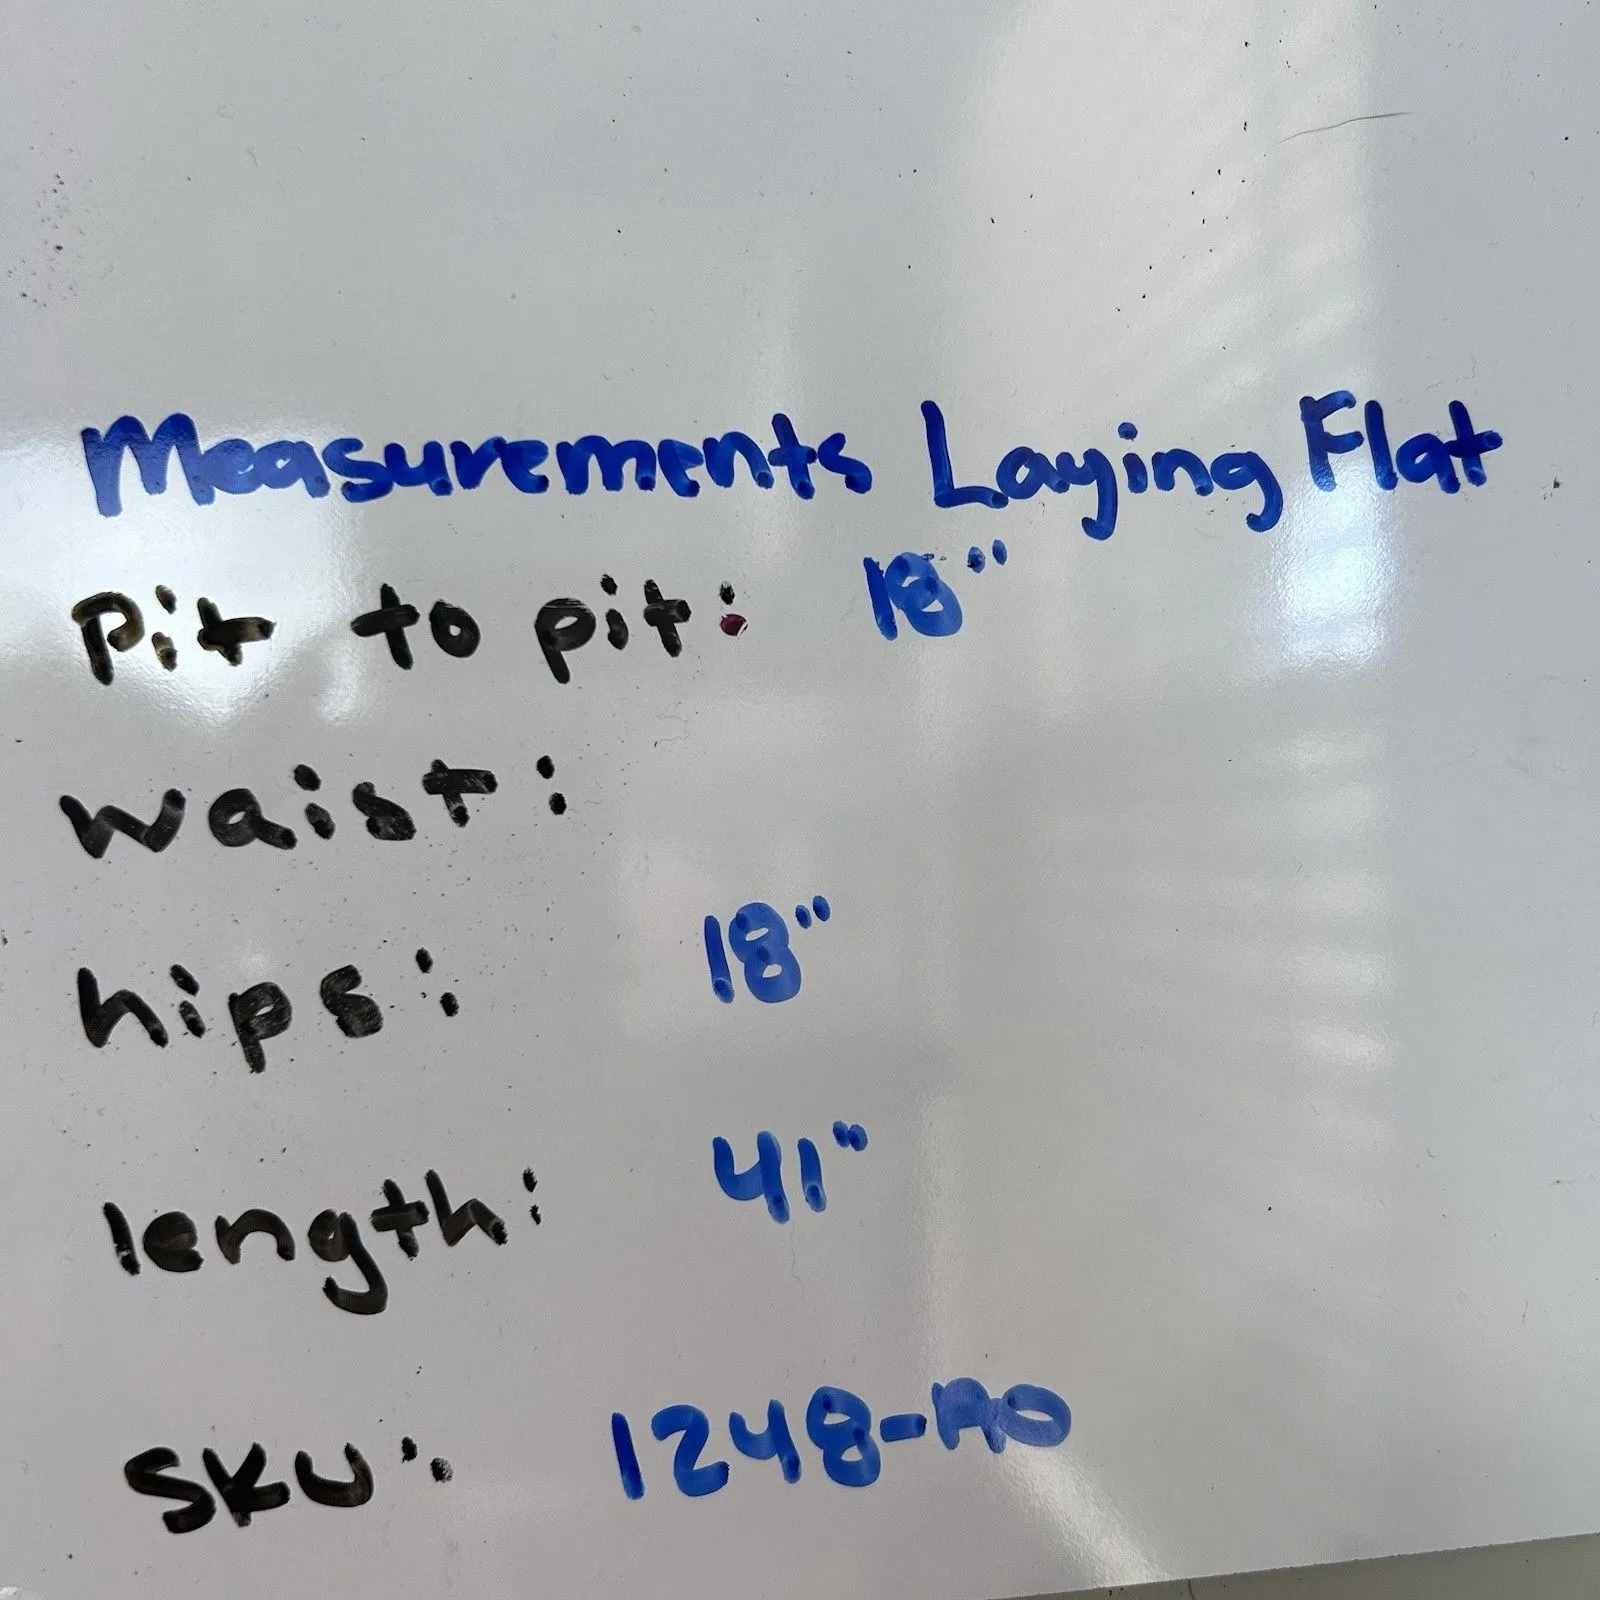 Measurements Laying Flat
Pit to pit: 18"
waist:
hips: 18"
length: 41"
SKU: 1248-AO